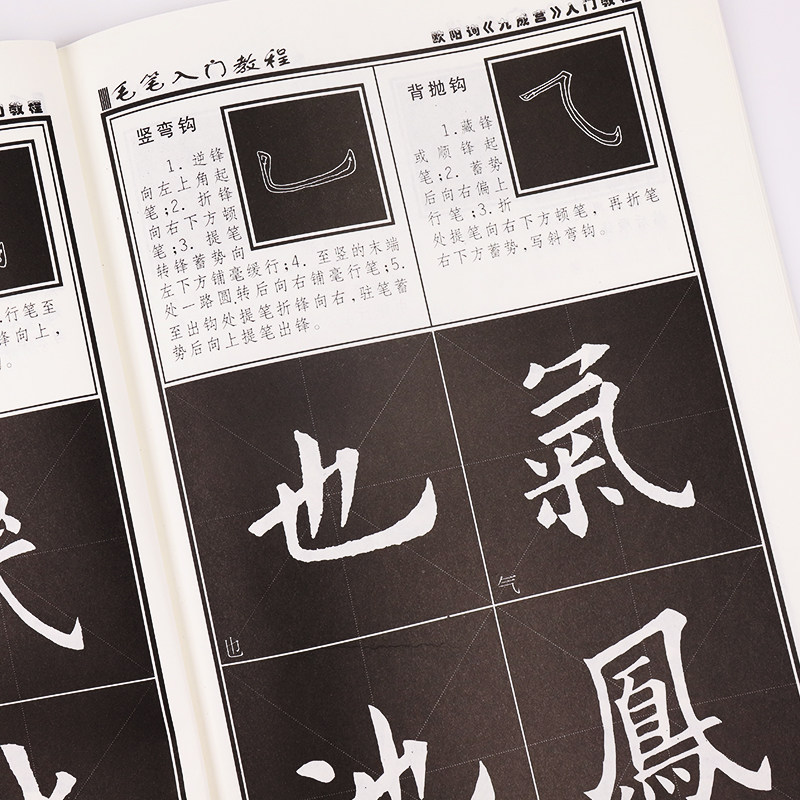 教程
.行笔至
锋向上，
。
毛笔入门教程
欧阳询《九成宫》入门教程
竖弯钩
1. 逆锋
向左上角起
笔;2. 折锋
向右下方顿
笔;3. 提笔
转锋蓄势向
左下方铺毫缓行;4. 至竖的末端
处一路圆转后向右铺毫行笔;5.
至出钩处提笔折锋向右,驻笔蓄
势后向上提笔出锋。
背抛钩
1.藏锋
或顺锋起
笔;2. 蓄势
后向右偏上
行笔;3.折
处提笔向右下方顿笔，再折笔
右下方蓄势,写斜弯钩。
也
氣
也
气
池
鳳